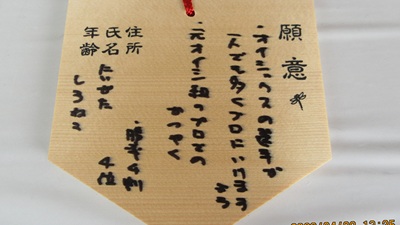 願意
・オイシックスの選手が
一人でも多くプロにいけます
よう
・元オイシ組のプロでの
かつやく
・勝率4割
4位
住所
氏名
年齢
にいがた
しろねこ